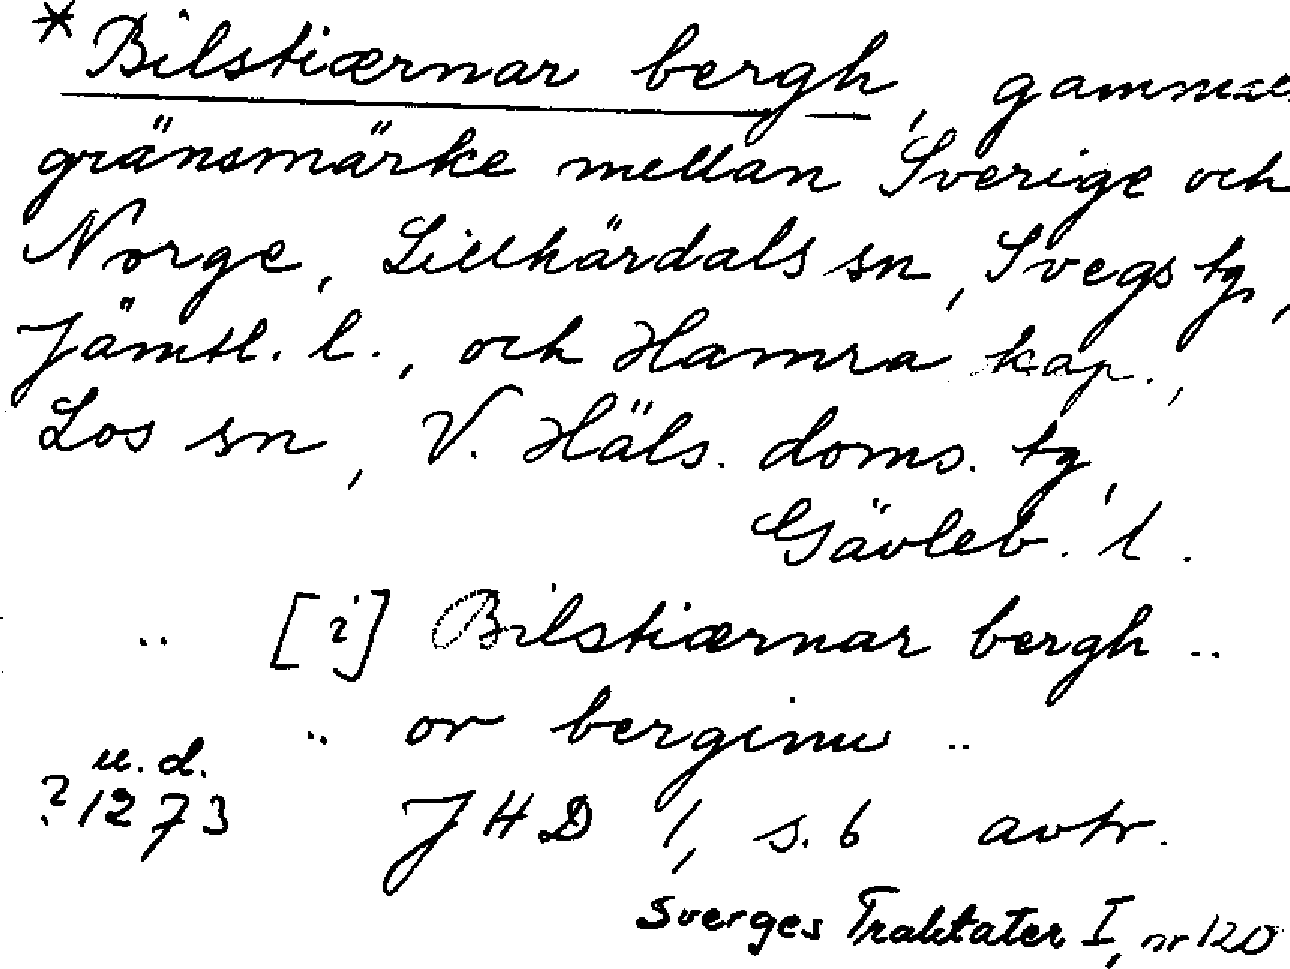 * Bilstiærnar bergh, gammal
gränsmärke mellan Sverige och
Norge, Lillhärdals sn, Svegs tg,
Jämtl. l., och Hamra kap.,
Los sn, V. Häls. doms. tg,
Gävleb. l.
.. [i] Bilstiærnar bergh ..
.. or berginu ..
u. d.
? 1273 JHD 1, s. 6 avtr.
Sverges Traktater I, nr 120